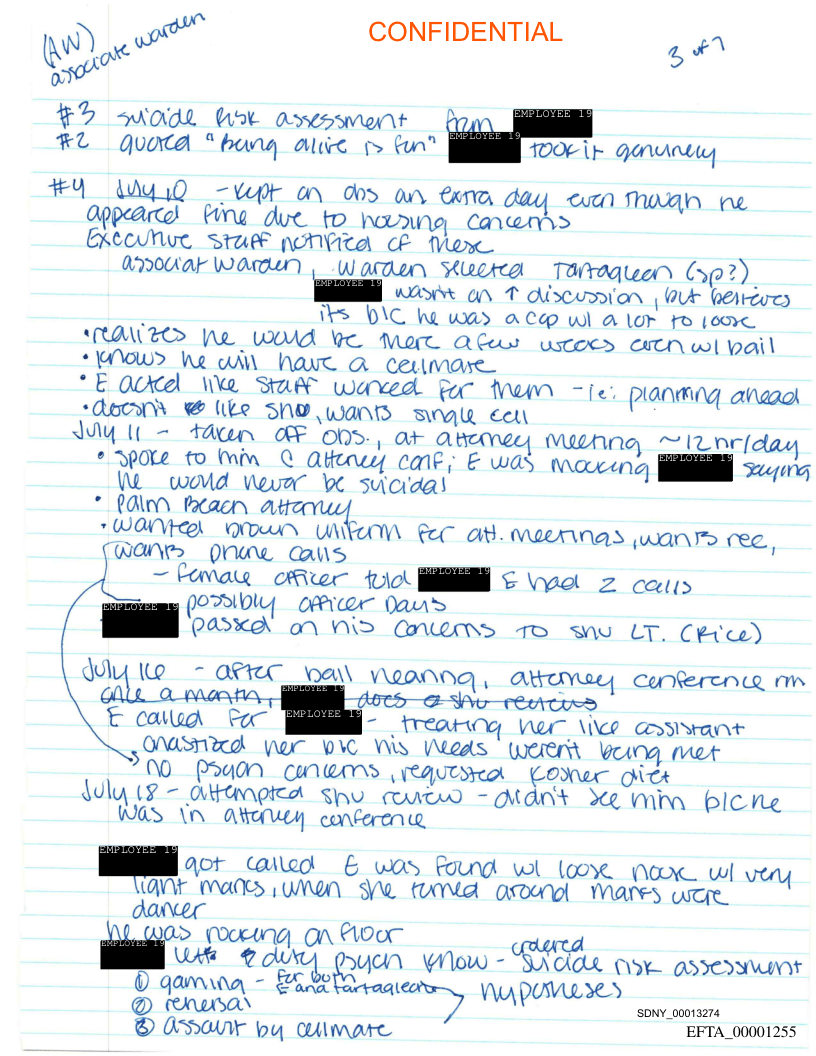 CONFIDENTIAL
(AW)
associate warden
3 of 7
#3 suicide risk assessment from EMPLOYEE 19
#2 quoted "Being alive is fun" EMPLOYEE 19 took it genuinely
#4 July 10 - kept on obs an extra day even though he
appeared fine due to housing concerns
Executive staff notified of these
associat warden, warden selected Tartagleen (sp?)
EMPLOYEE 19 wasn't on ↑ discussion, but believes
its b/c he was a cop w/ a lot to loose
• realizes he would be there a few weeks even w/ bail
• knows he will have a cellmate
• E acted like staff worked for them - ie: planning ahead
• doesn't like SHU, wants single cell
July 11 - taken off obs., at attorney meeting ~12 hr/day
• spoke to him @ attorney conf; E was mocking EMPLOYEE 19 saying
he would never be suicidal
• Palm Beach attorney
• wanted brown uniform for att. meetings, wants rec,
wants phone calls
- female officer told EMPLOYEE 19 E had 2 calls
possibly officer Davis
EMPLOYEE 19 passed on his concerns to SHU LT. (Rice)
July 16 - after bail hearing, attorney conference rm
once a month, EMPLOYEE 19 does SHU reviews
E called for EMPLOYEE 19 - treating her like assistant
chastized her b/c his needs weren't being met
no psych concerns, requested kosher diet
July 18 - attempted SHU review - didn't see him b/c he
was in attorney conference
EMPLOYEE 19 got called E was found w/ loose noose w/ very
light marks, when she turned around marks were
dancer
he was rocking on floor
EMPLOYEE 19 lets duty psych know - ordered suicide risk assessment
① gaming - for both E and Tartagleon
② rehersal
③ assault by cellmate
hypotheses
SDNY_00013274
EFTA_00001255